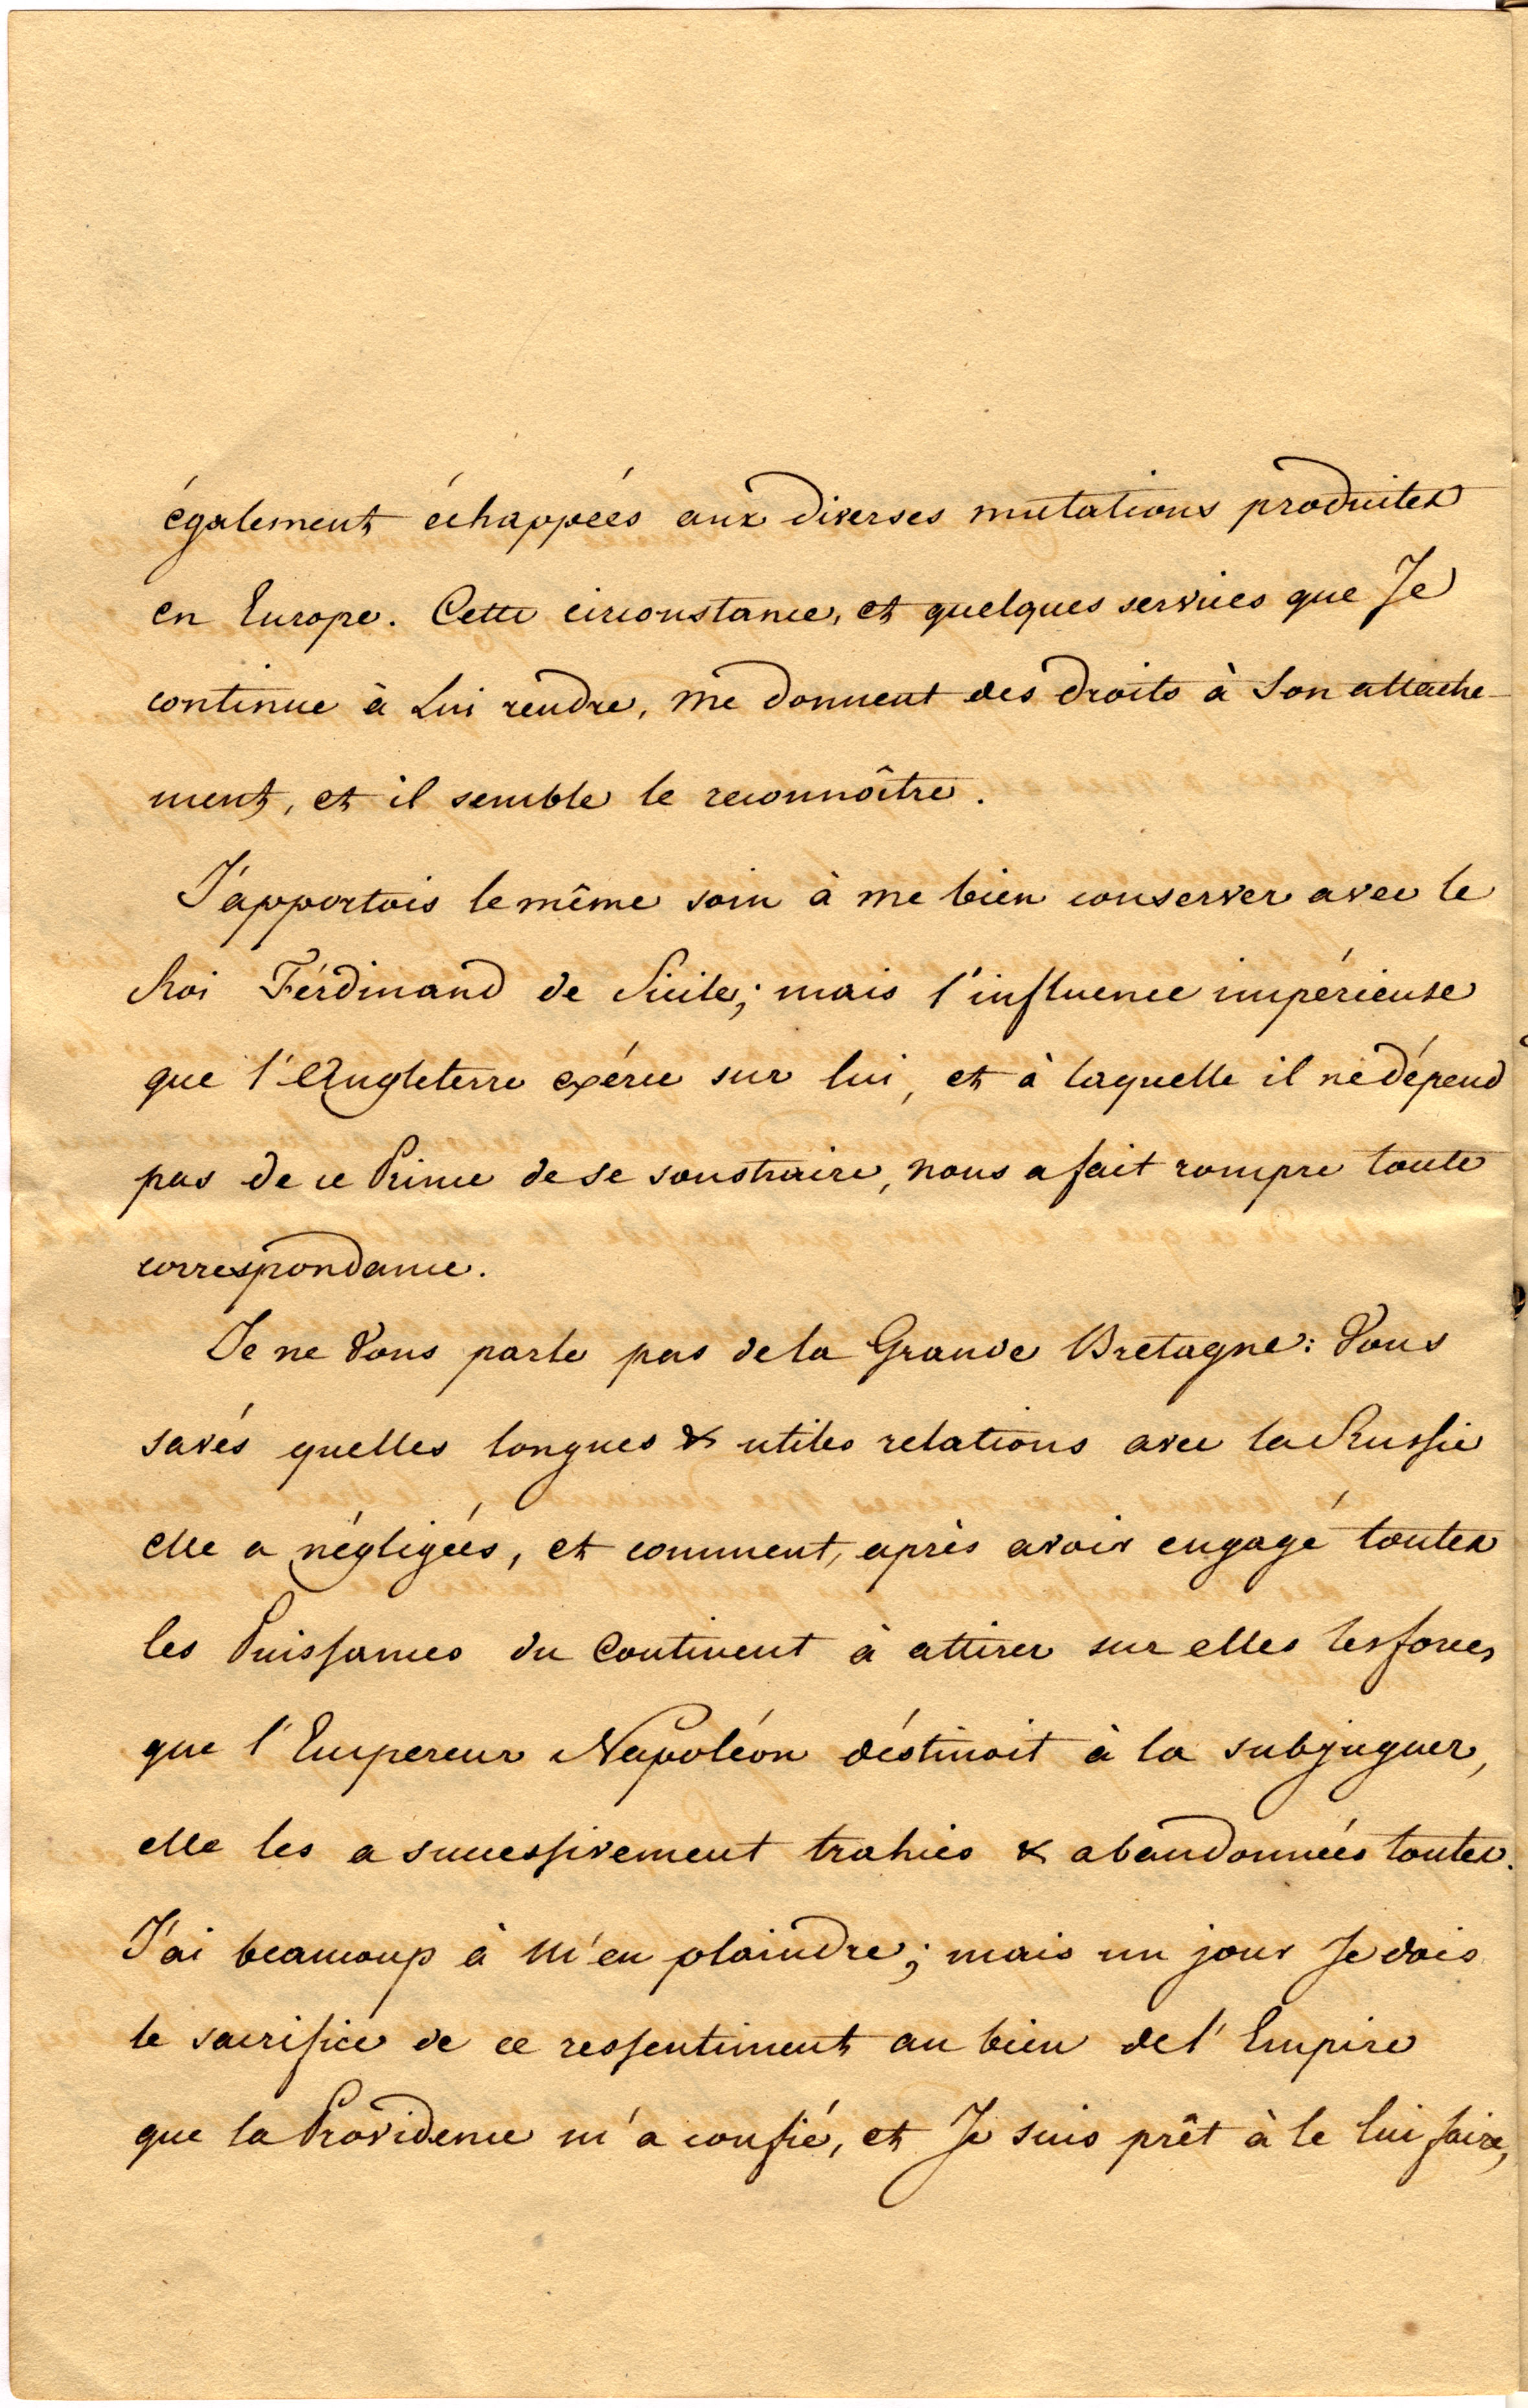 également échappées aux diverses mutations produites
en Europe. Cette circonstance, et quelques services que Je
continue à Lui rendre, me donnent des droits à Son attache-
ment, et il semble le reconnoître.
J'apportois le même soin à me bien conserver avec le
Roi Férdinand de Sicile; mais l'influence impérieuse
que l'Angleterre exérce sur lui, et à laquelle il ne dépend
pas de ce Prince de se soustraire, nous a fait rompre toute
correspondance.
Je ne Vous parle pas de la Grande Bretagne: Vous
savés quelles longues & utiles relations avec la Russie
elle a négligées, et comment, après avoir engagé toutes
les Puissances du Continent à attirer sur elles les forces
que l'Empereur Napoléon déstinoit à la subjuguer,
elle les a successivement trahies & abandonnées toutes.
J'ai beaucoup à M'en plaindre; mais un jour Je dois
le sacrifice de ce ressentiment au bien de l'Empire
que la Providence m'a confié, et Je suis prêt à le lui faire,